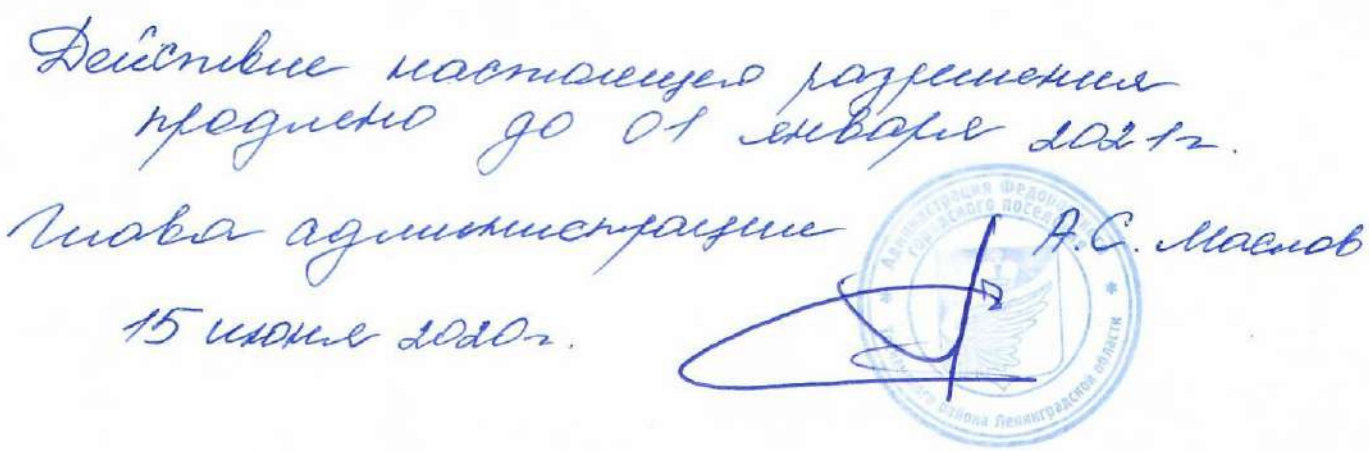 Действие настоящего разрешения
продлено до 01 января 2021г.
Глава администрации А.С. Маслов
15 июня 2020г.
Администрация Федоровского
городского поселения
района Ленинградской области